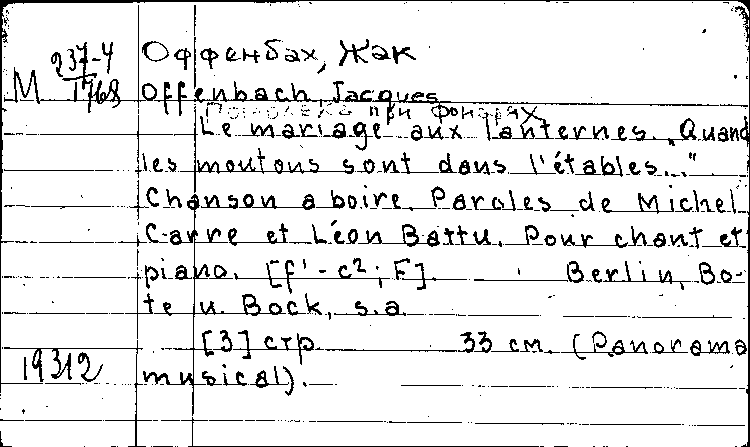 М 237-4
1768
Оффенбах, Жак
Offenbach, Jacques
Помолвка при фонарях
Le mariage aux lanternes. „Quand
les moutons sont dans l'étables..."
Chanson a boire. Paroles de Michel
Carre et Léon Battu. Pour chant et
piano. [f'-c²; F]. Berlin, Bo-
te u. Bock, s.a.
[3] стр. 33 см. (Panorama
musical).
19312